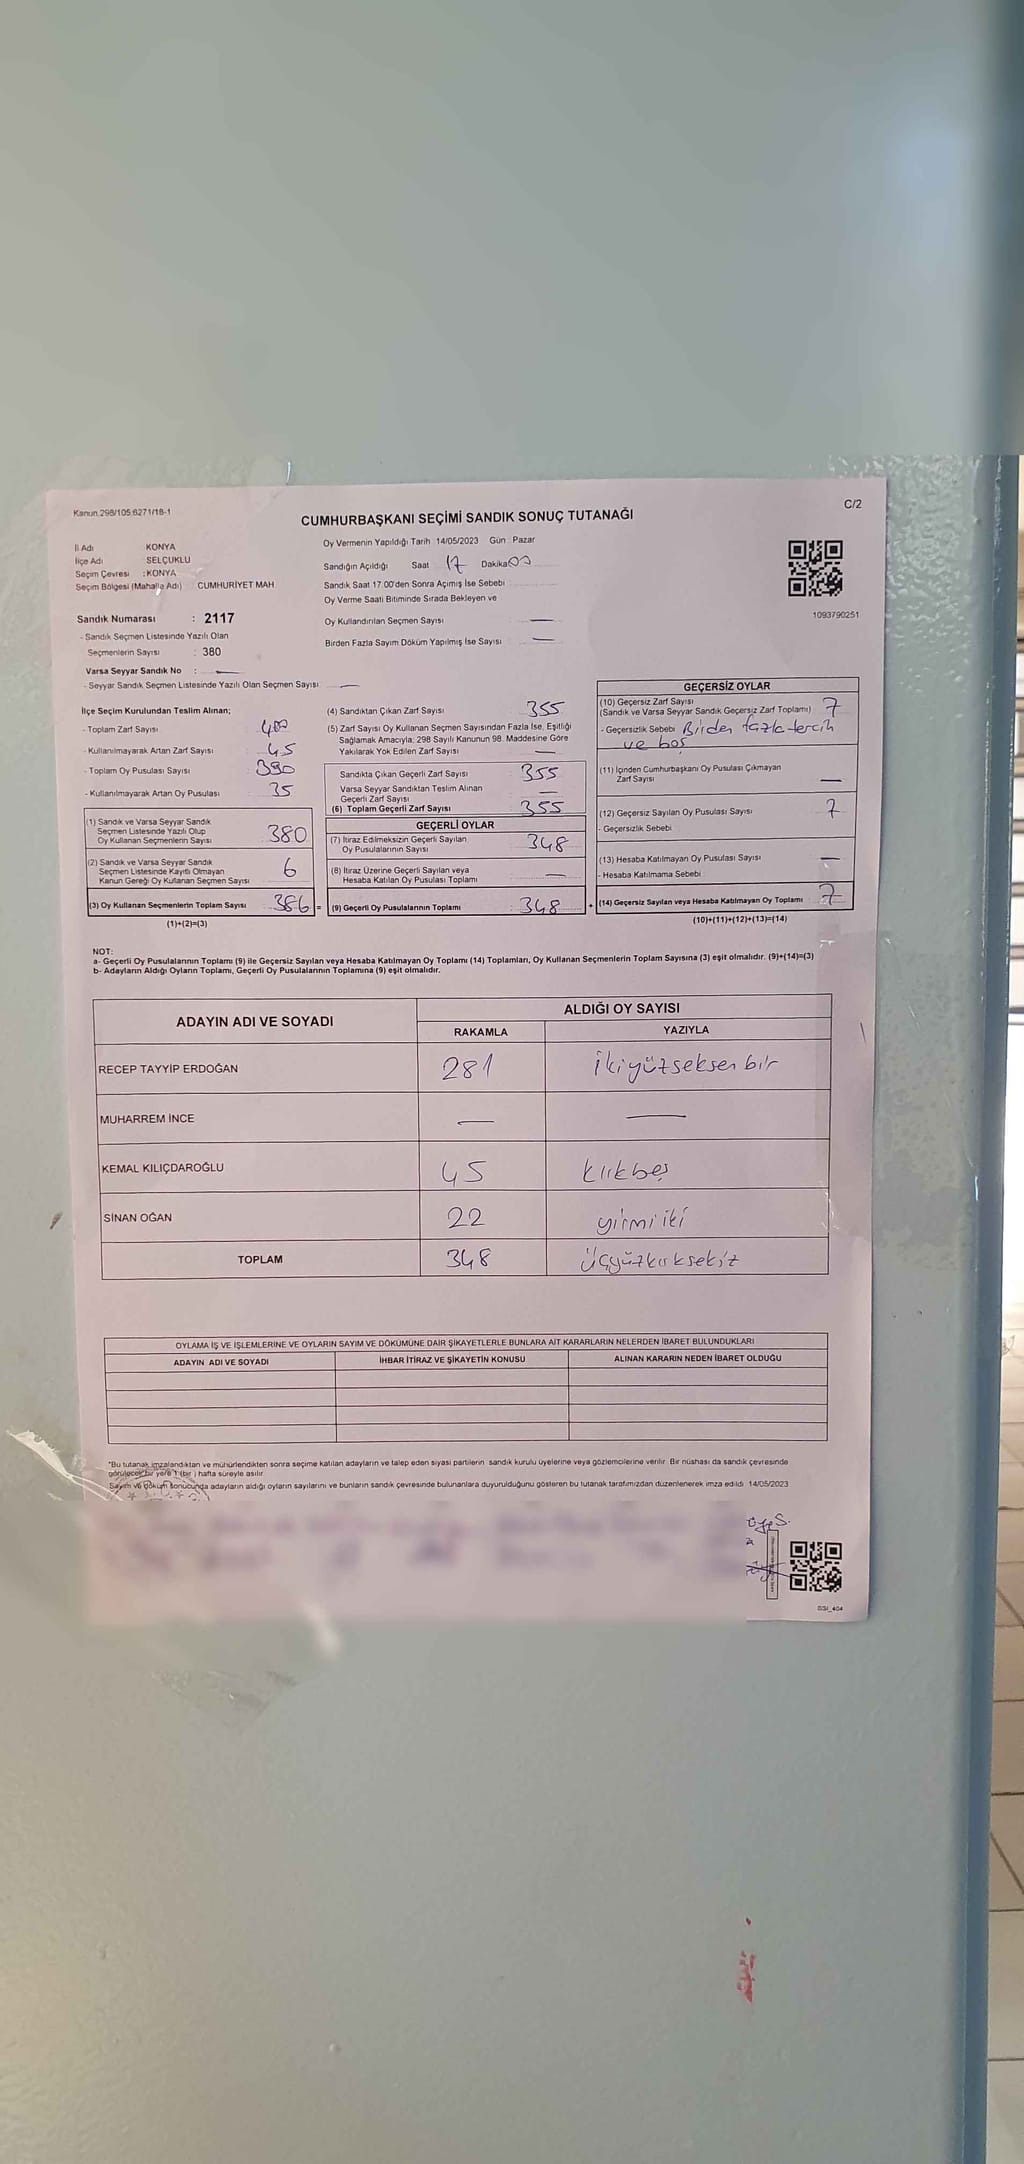 Kanun 298/105,6271/18-1
C/2
CUMHURBAŞKANI SEÇİMİ SANDIK SONUÇ TUTANAĞI
İl Adı KONYA
İlçe Adı SELÇUKLU
Seçim Çevresi : KONYA
Seçim Bölgesi (Mahalle Adı) CUMHURİYET MAH.
Oy Vermenin Yapıldığı Tarih 14/05/2023 Gün Pazar
Sandığın Açıldığı Saat 17 Dakika 00
Sandık Saat 17.00'den Sonra Açımış İse Sebebi
Oy Verme Saati Bitiminde Sırada Bekleyen ve
Oy Kullandırılan Seçmen Sayısı —
Birden Fazla Sayım Döküm Yapılmış İse Sayısı —
1093790251
Sandık Numarası : 2117
- Sandık Seçmen Listesinde Yazılı Olan
Seçmenlerin Sayısı : 380
Varsa Seyyar Sandık No : —
- Seyyar Sandık Seçmen Listesinde Yazılı Olan Seçmen Sayısı —
İlçe Seçim Kurulundan Teslim Alınan;
- Toplam Zarf Sayısı 400
- Kullanılmayarak Artan Zarf Sayısı 45
- Toplam Oy Pusulası Sayısı 390
- Kullanılmayarak Artan Oy Pusulası 35
(1) Sandık ve Varsa Seyyar Sandık
Seçmen Listesinde Yazılı Olup
Oy Kullanan Seçmenlerin Sayısı 380
(2) Sandık ve Varsa Seyyar Sandık
Seçmen Listesinde Kayıtlı Olmayan
Kanun Gereği Oy Kullanan Seçmen Sayısı 6
(3) Oy Kullanan Seçmenlerin Toplam Sayısı 386 =
(1)+(2)=(3)
(4) Sandıktan Çıkan Zarf Sayısı 355
(5) Zarf Sayısı Oy Kullanan Seçmen Sayısından Fazla İse, Eşitliği
Sağlamak Amacıyla, 298 Sayılı Kanunun 98. Maddesine Göre
Yakılarak Yok Edilen Zarf Sayısı —
Sandıkta Çıkan Geçerli Zarf Sayısı 355
Varsa Seyyar Sandıktan Teslim Alınan
Geçerli Zarf Sayısı —
(6) Toplam Geçerli Zarf Sayısı 355
GEÇERLİ OYLAR
(7) İtiraz Edilmeksizin Geçerli Sayılan
Oy Pusulalarının Sayısı 348
(8) İtiraz Üzerine Geçerli Sayılan veya
Hesaba Katılan Oy Pusulası Toplamı —
(9) Geçerli Oy Pusulalarının Toplamı 348 +
GEÇERSİZ OYLAR
(10) Geçersiz Zarf Sayısı
(Sandık ve Varsa Seyyar Sandık Geçersiz Zarf Toplamı) 7
- Geçersizlik Sebebi Birden fazla tercih
ve boş
(11) İçinden Cumhurbaşkanı Oy Pusulası Çıkmayan
Zarf Sayısı —
(12) Geçersiz Sayılan Oy Pusulası Sayısı 7
- Geçersizlik Sebebi
(13) Hesaba Katılmayan Oy Pusulası Sayısı —
- Hesaba Katılmama Sebebi
(14) Geçersiz Sayılan veya Hesaba Katılmayan Oy Toplamı 7
(10)+(11)+(12)+(13)=(14)
NOT:
a- Geçerli Oy Pusulalarının Toplamı (9) ile Geçersiz Sayılan veya Hesaba Katılmayan Oy Toplamı (14) Toplamları, Oy Kullanan Seçmenlerin Toplam Sayısına (3) eşit olmalıdır. (9)+(14)=(3)
b- Adayların Aldığı Oyların Toplamı, Geçerli Oy Pusulalarının Toplamına (9) eşit olmalıdır.
ADAYIN ADI VE SOYADI
ALDIĞI OY SAYISI
RAKAMLA YAZIYLA
RECEP TAYYİP ERDOĞAN 281 ikiyüzseksen bir
MUHARREM İNCE — —
KEMAL KILIÇDAROĞLU 45 kırkbeş
SİNAN OĞAN 22 yirmi iki
TOPLAM 348 üçyüzkırksekiz
OYLAMA İŞ VE İŞLEMLERİNE VE OYLARIN SAYIM VE DÖKÜMÜNE DAİR ŞİKAYETLERLE BUNLARA AİT KARARLARIN NELERDEN İBARET BULUNDUKLARI
ADAYIN ADI VE SOYADI İHBAR İTİRAZ VE ŞİKAYETİN KONUSU ALINAN KARARIN NEDEN İBARET OLDUĞU
"Bu tutanak imzalandıktan ve mühürlendikten sonra seçime katılan adayların ve talep eden siyasi partilerin sandık kurulu üyelerine veya gözlemcilerine verilir. Bir nüshası da sandık çevresinde
görülecek bir yere 1 (bir) hafta süreyle asılır.
Sayım ve döküm sonucunda adayların aldığı oyların sayılarını ve bunların sandık çevresinde bulunanlara duyurulduğunu gösteren bu tutanak tarafımızdan düzenlenerek imza edildi 14/05/2023